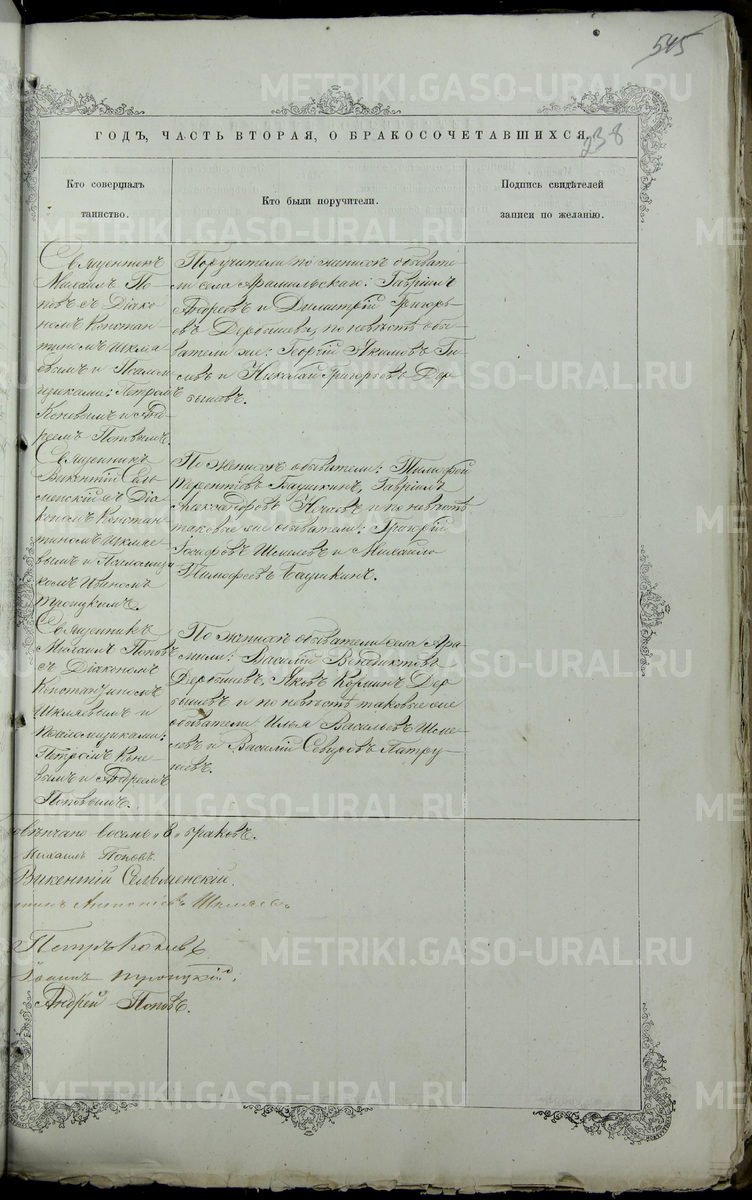 545
METRIKI.GASO-URAL.RU
ГОДЪ, ЧАСТЬ ВТОРАЯ, О БРАКОСОЧЕТАВШИХСЯ.
238
Кто совершалъ
таинство.
Кто были поручители.
Подпись свидѣтелей
записи по желанію.
Священникъ
Михаилъ По-
повъ съ Діако-
номъ Констан-
тиномъ Шкмля-
евымъ и Псалом-
щиками: Петромъ
Коневымъ и Анд-
реемъ Поповымъ.
Поручители по женихѣ обывате-
ли села Арамильскаго: Гавріилъ
Андреевъ и Димитрій Григорь-
евъ Дербышевы, по невѣстѣ обы-
ватели же: Георгій Якимовъ
и Николай Григорьевъ Дер-
бышевъ.
Священникъ
Викентій Сель-
менскій съ Діа-
кономъ Констан-
тиномъ Шкмляе-
вымъ и Псаломщи-
комъ Иваномъ
Троицкимъ.
По женихѣ обыватели: Тимофей
Терентьевъ Башкинъ, Гавріилъ
Александровъ и по невѣстѣ
таковые же обыватели: Григорій
Іосифовъ Шмелевъ и Михайло
Тимофеевъ Башкинъ.
Священникъ
Михаилъ Поповъ
съ Діакономъ
Константиномъ
Шкмляевымъ и
Псаломщиками:
Петромъ Коне-
вымъ и Андреемъ
Поповымъ.
По женихѣ обыватели села Ара-
мили: Василій Венедиктовъ
Дербышевъ, Яковъ Дер-
бышевъ и по невѣстѣ таковые же
обыватели Илья Васильевъ Шме-
левъ и Василій Патру-
шевъ.
восемь "8" браковъ.
Михаилъ Поповъ
Викентій Сельменскій.
Петръ Коневъ
Іоаннъ Троицкій.
Андрей Поповъ.